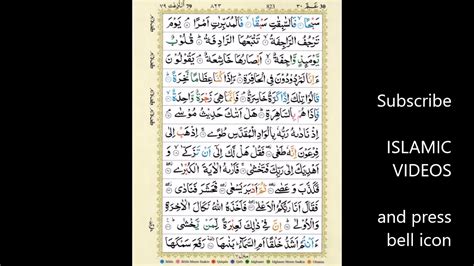 النّٰزعٰت ٧٩ 79 ٨٢٣ 823 عم ٣٠ 30
سَبْحًا ۙ فَالسّٰبِقٰتِ سَبْقًا ۙ فَالْمُدَبِّرٰتِ اَمْرًا ۘ يَوْمَ
تَرْجُفُ الرَّاجِفَةُ ۙ تَتْبَعُهَا الرَّادِفَةُ ؕ قُلُوْبٌ
يَّوْمَىِٕذٍ وَّاجِفَةٌ ۙ اَبْصَارُهَا خَاشِعَةٌ ۘ يَقُوْلُوْنَ
ءَاِنَّا لَمَرْدُوْدُوْنَ فِي الْحَافِرَةِ ؕ ءَاِذَا كُنَّا عِظَامًا نَّخِرَةً ؕ
قَالُوْا تِلْكَ اِذًا كَرَّةٌ خَاسِرَةٌ ۘ فَاِنَّمَا هِيَ زَجْرَةٌ وَّاحِدَةٌ ۙ
فَاِذَا هُمْ بِالسَّاهِرَةِ ؕ هَلْ اَتٰىكَ حَدِيْثُ مُوْسٰى ۘ
اِذْ نَادٰىهُ رَبُّهٗ بِالْوَادِ الْمُقَدَّسِ طُوًى ۚ اِذْهَبْ اِلٰى
فِرْعَوْنَ اِنَّهٗ طَغٰى ۖ فَقُلْ هَلْ لَّكَ اِلٰۤى اَنْ تَزَكّٰى ۙ
وَاَهْدِيَكَ اِلٰى رَبِّكَ فَتَخْشٰى ۚ فَاَرٰىهُ الْاٰيَةَ الْكُبْرٰى ۖ
فَكَذَّبَ وَعَصٰى ۖ ثُمَّ اَدْبَرَ يَسْعٰى ۖ فَحَشَرَ فَنَادٰى ۖ
فَقَالَ اَنَا رَبُّكُمُ الْاَعْلٰى ۖ فَاَخَذَهُ اللّٰهُ نَكَالَ الْاٰخِرَةِ
وَالْاُوْلٰى ؕ اِنَّ فِيْ ذٰلِكَ لَعِبْرَةً لِّمَنْ يَّخْشٰى ؕ
ءَاَنْتُمْ اَشَدُّ خَلْقًا اَمِ السَّمَآءُ ؕ بَنٰىهَا رَفَعَ سَمْكَهَا
Subscribe
ISLAMIC
VIDEOS
and press
bell icon